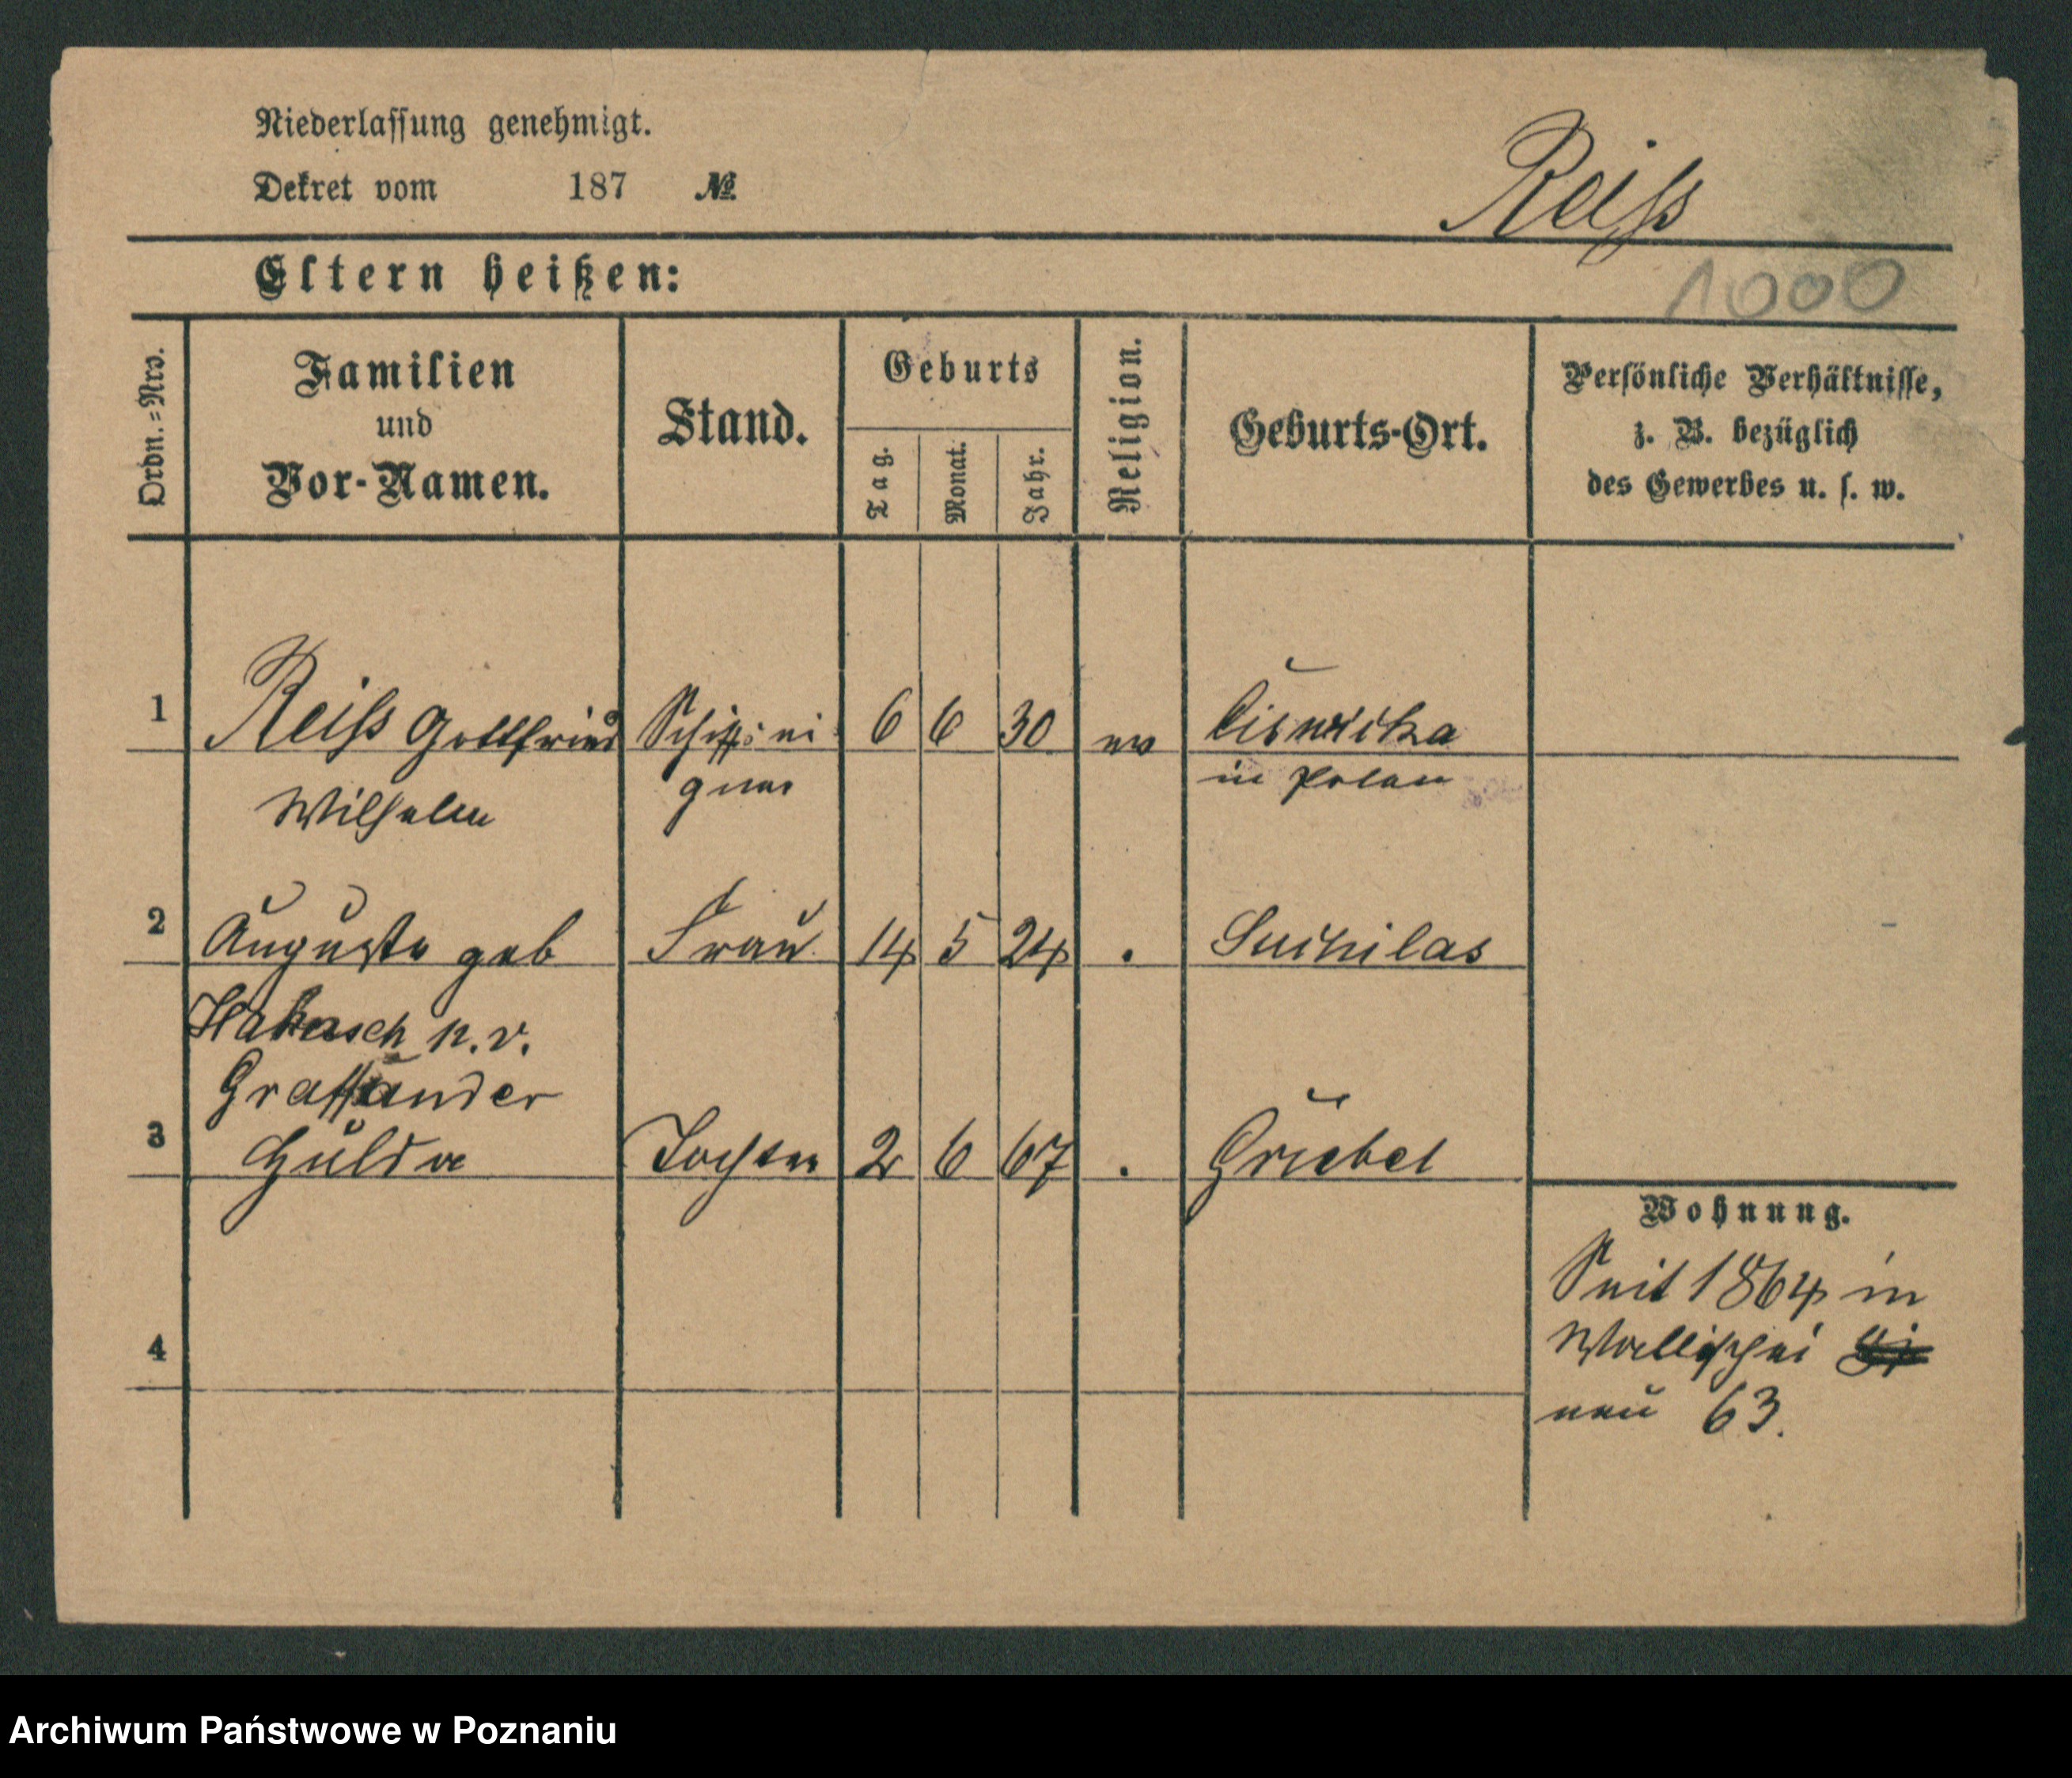 Niederlassung genehmigt.
Dekret vom 187 №
Reiss
Eltern heißen:
1000
Ordn.=Nro.
Familien
und
Vor-Namen.
Stand.
Geburts
Tag.
Monat.
Jahr.
Religion.
Geburts-Ort.
Persönliche Verhältnisse,
z. B. bezüglich
des Gewerbes u. s. w.
1 Reiss Gottfried Schiffsei 6 6 30 ev
Wilhelm gner in Polen
2 Auguste geb Frau 14 5 24 . Suchilas
n. v.
3 Hulda Tochter 2 6 67 . Griebel
Wohnung.
Seit 1864 in
Wallischei
neu 63.
4
Archiwum Państwowe w Poznaniu